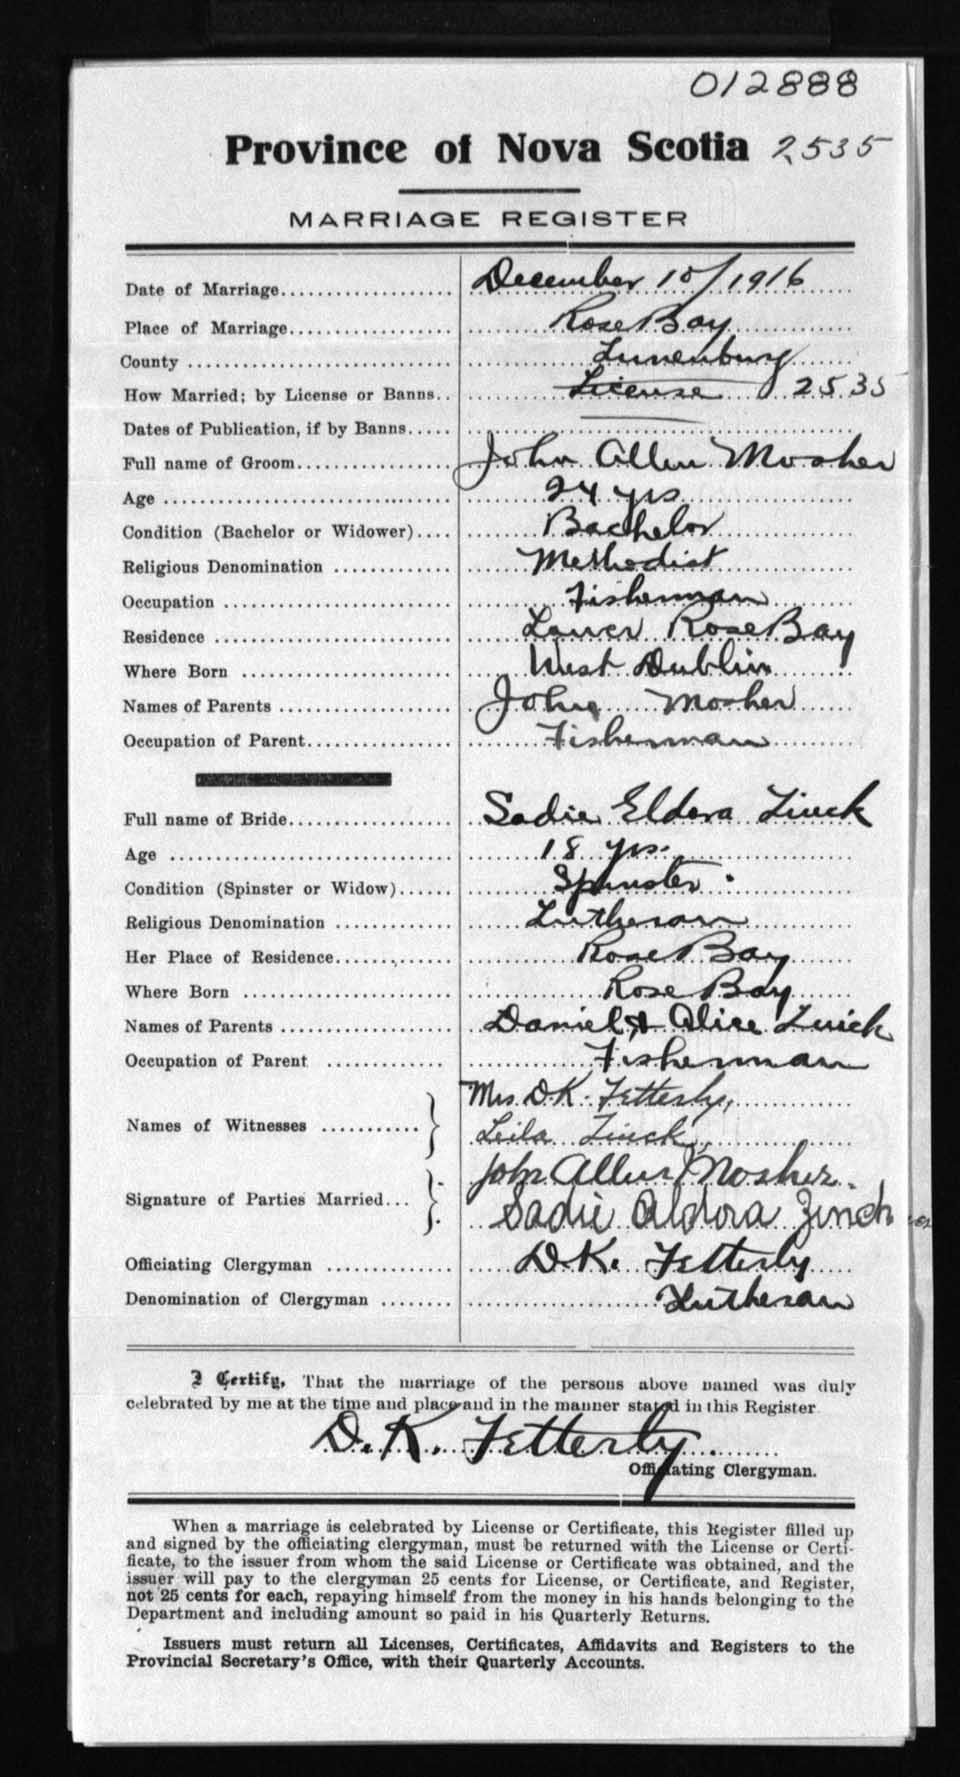 012888
Province of Nova Scotia 2535
MARRIAGE REGISTER
Date of Marriage December 10/1916
Place of Marriage Rose Bay
County Lunenburg
How Married; by License or Banns License 2535
Dates of Publication, if by Banns
Full name of Groom John Allen Mosher
Age 24 yrs
Condition (Bachelor or Widower) Bachelor
Religious Denomination Methodist
Occupation Fisherman
Residence Lower Rose Bay
Where Born West Dublin
Names of Parents John Mosher
Occupation of Parent Fisherman
Full name of Bride Sadie Eldora Zinck
Age 18 yrs.
Condition (Spinster or Widow) Spinster
Religious Denomination Lutheran
Her Place of Residence Rose Bay
Where Born Rose Bay
Names of Parents Daniel & Alice Zinck
Occupation of Parent Fisherman
Mrs. D.K. Fetterly,
Names of Witnesses
Leila Zinck
John Allen Mosher.
Signature of Parties Married
Sadie Aldora Zinck
Officiating Clergyman D.K. Fetterly
Denomination of Clergyman Lutheran
I Certify, That the marriage of the persons above named was duly
celebrated by me at the time and place and in the manner stated in this Register
D. K. Fetterly.
Officiating Clergyman.
When a marriage is celebrated by License or Certificate, this Register filled up
and signed by the officiating clergyman, must be returned with the License or Certi-
ficate, to the issuer from whom the said License or Certificate was obtained, and the
issuer will pay to the clergyman 25 cents for License, or Certificate, and Register,
not 25 cents for each, repaying himself from the money in his hands belonging to the
Department and including amount so paid in his Quarterly Returns.
Issuers must return all Licenses, Certificates, Affidavits and Registers to the
Provincial Secretary's Office, with their Quarterly Accounts.